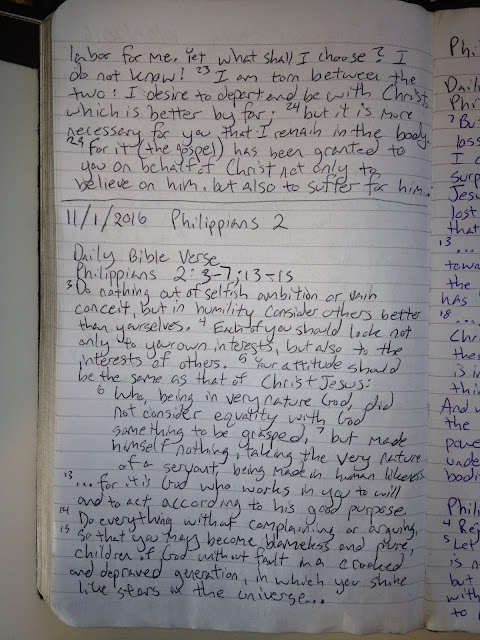 labor for me. Yet what shall I choose? I
do not know! 23 I am torn between the
two: I desire to depart and be with Christ,
which is better by far; 24 but it is more
necessary for you that I remain in the body.
29 For it (the gospel) has been granted to
you on behalf of Christ not only to
believe on him, but also to suffer for him.
11/1/2016 Philippians 2
Daily Bible Verse
Philippians 2:3-7;13-15
3 Do nothing out of selfish ambition or vain
conceit, but in humility consider others better
than yourselves. 4 Each of you should look not
only to your own interests, but also to the
interests of others. 5 Your attitude should
be the same as that of Christ Jesus:
6 Who, being in very nature God, did
not consider equality with God
something to be grasped, 7 but made
himself nothing, taking the very nature
of a servant, being made in human likeness
13 ... for it is God who works in you to will
and to act according to his good purpose.
14 Do everything without complaining or arguing,
15 so that you may become blameless and pure,
children of God without fault in a crooked
and depraved generation, in which you shine
like stars in the universe...
Phil
Daily
Phi
7 Bu
loss
I c
surp
Jesu
lost
that
13
...
towa
the
has
18 ...
Chr
the
is i
thi
And
the
pow
unde
bodi
Phil
4 Re
5 Let
is n
but
with
to